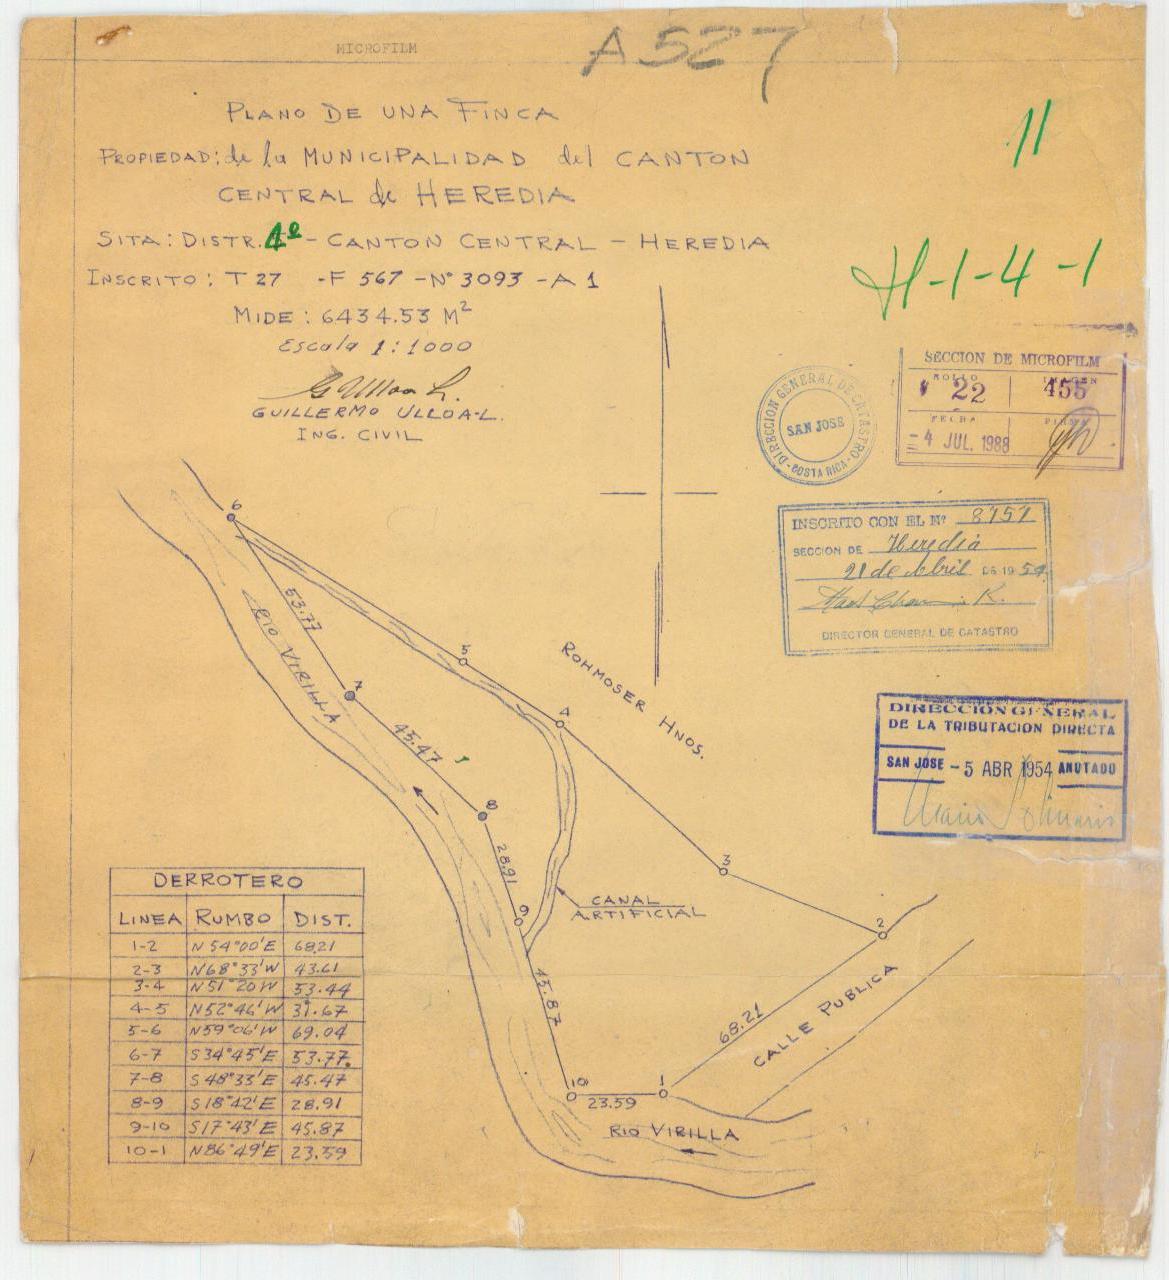 MICROFILM
A527
PLANO DE UNA FINCA
11
PROPIEDAD: de la MUNICIPALIDAD del CANTON
CENTRAL de HEREDIA
SITA: DISTR. 4º - CANTON CENTRAL - HEREDIA
H-1-4-1
INSCRITO: T 27 - F 567 - Nº 3093 - A 1
MIDE: 6434.53 M²
Escala 1:1000
GUILLERMO ULLOA-L.
ING. CIVIL
DIRECCION GENERAL DE CATASTRO
SAN JOSE
- COSTA RICA -
SECCION DE MICROFILM
ROLLO IMAGEN
22 455
FECHA FIRMA
- 4 JUL. 1988
INSCRITO CON EL Nº 8757
SECCION DE Heredia
21 de Abril DE 1954
DIRECTOR GENERAL DE CATASTRO
DIRECCION GENERAL
DE LA TRIBUTACION DIRECTA
SAN JOSE - 5 ABR 1954 ANOTADO
6
53.77
RIO VIRILLA
5
ROHMOSER HNOS.
7
4
45.47
8
28.91
3
9
CANAL
ARTIFICIAL
2
45.87
68.21
CALLE PUBLICA
10
1
23.59
RIO VIRILLA
DERROTERO
LINEA RUMBO DIST.
1-2 N 54°00'E 68.21
2-3 N 68°33'W 43.61
3-4 N 51°20'W 53.44
4-5 N 52°46'W 31.67
5-6 N 59°06'W 69.04
6-7 S 34°45'E 53.77
7-8 S 48°33'E 45.47
8-9 S 18°42'E 28.91
9-10 S 17°43'E 45.87
10-1 N 86°49'E 23.59